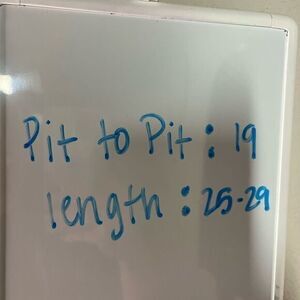 Pit to Pit: 19
length: 25-29